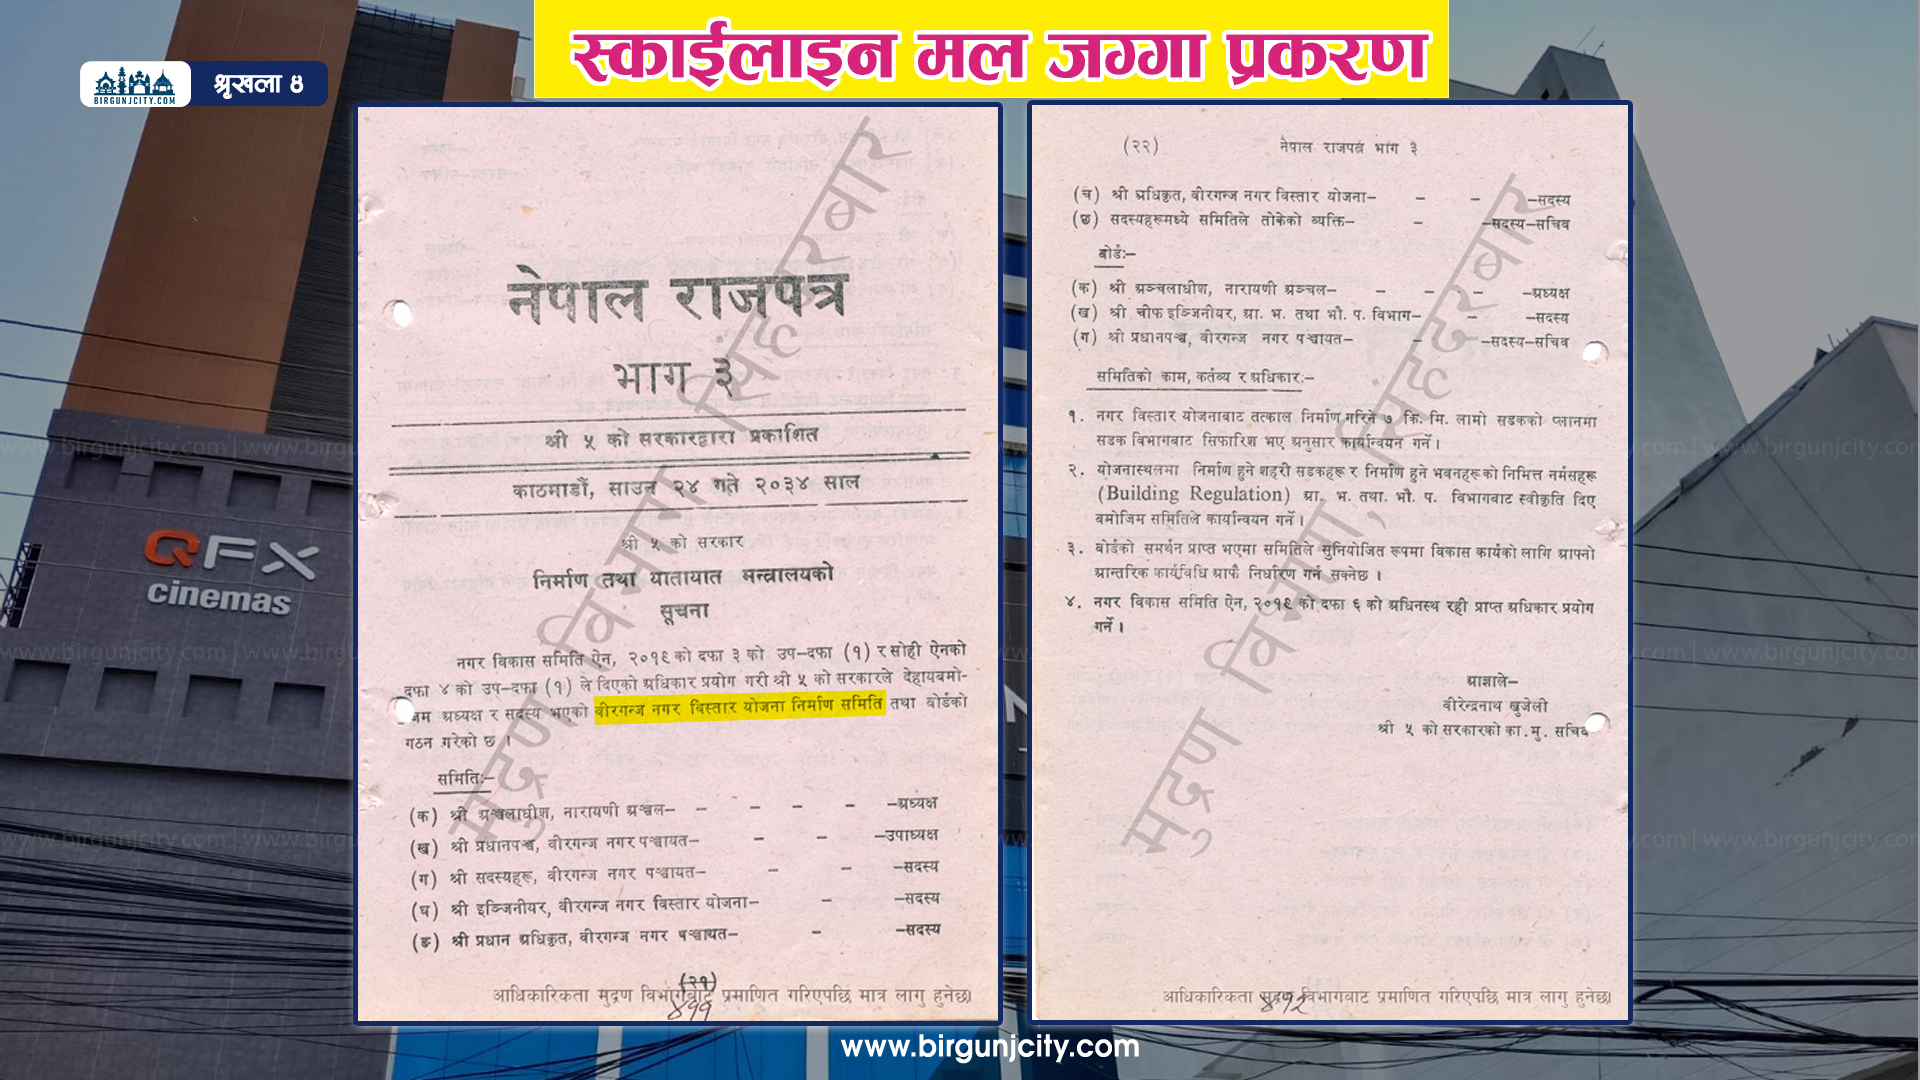 स्काईलाइन मल जग्गा प्रकरण
BIRGUNJCITY.COM
श्रृखला ४
QFX
cinemas
नेपाल राजपत्र
भाग ३
श्री ५ को सरकारद्वारा प्रकाशित
काठमाडौं, साउन २४ गते २०३४ साल
श्री ५ को सरकार
निर्माण तथा यातायात मन्त्रालयको
सूचना
नगर विकास समिति ऐन, २०१९ को दफा ३ को उप-दफा (१) र सोही ऐनको
दफा ४ को उप-दफा (१) ले दिएको अधिकार प्रयोग गरी श्री ५ को सरकारले देहायबमो-
जिम अध्यक्ष र सदस्य भएको वीरगन्ज नगर विस्तार योजना निर्माण समिति तथा बोर्डको
गठन गरेको छ ।
समितिः-
(क) श्री अञ्चलाधीश, नारायणी अञ्चल- - - - -अध्यक्ष
(ख) श्री प्रधानपञ्च, वीरगन्ज नगर पञ्चायत- - - -उपाध्यक्ष
(ग) श्री सदस्यहरू, वीरगन्ज नगर पञ्चायत- - - -सदस्य
(घ) श्री इञ्जिनीयर, वीरगन्ज नगर विस्तार योजना- - -सदस्य
(ङ) श्री प्रधान अधिकृत, वीरगन्ज नगर पञ्चायत- - -सदस्य
(२१)
आधिकारिकता मुद्रण विभागबाट प्रमाणित गरिएपछि मात्र लागु हुनेछ।
४११
मुद्रण विभाग, सिंहदरबार
(२२) नेपाल राजपत्र भाग ३
(च) श्री अधिकृत, वीरगन्ज नगर विस्तार योजना- - - -सदस्य
(छ) सदस्यहरूमध्ये समितिले तोकेको व्यक्ति- - -सदस्य-सचिव
बोर्डः-
(क) श्री अञ्चलाधीश, नारायणी अञ्चल- - - - -अध्यक्ष
(ख) श्री चीफ इञ्जिनीयर, आ. भ. तथा भौ. प. विभाग- - -सदस्य
(ग) श्री प्रधानपञ्च, वीरगन्ज नगर पञ्चायत- - -सदस्य-सचिव
समितिको काम, कर्तव्य र अधिकारः-
१. नगर विस्तार योजनाबाट तत्काल निर्माण गरिने ७ कि. मि. लामो सडकको प्लानमा
सडक विभागबाट सिफारिश भए अनुसार कार्यान्वयन गर्ने ।
२. योजनास्थलमा निर्माण हुने शहरी सडकहरू र निर्माण हुने भवनहरूको निमित्त नर्मसहरू
(Building Regulation) आ. भ. तथा. भौ. प. विभागबाट स्वीकृति दिए
बमोजिम समितिले कार्यान्वयन गर्ने ।
३. बोर्डको समर्थन प्राप्त भएमा समितिले सुनियोजित रूपमा विकास कार्यको लागि आफ्नो
आन्तरिक कार्यविधि आफै निर्धारण गर्न सक्नेछ ।
४. नगर विकास समिति ऐन, २०१९ को दफा ६ को अधिनस्थ रही प्राप्त अधिकार प्रयोग
गर्ने ।
आज्ञाले-
वीरेन्द्रनाथ खुजेली
श्री ५ को सरकारको का. मु. सचिव
आधिकारिकता मुद्रण विभागबाट प्रमाणित गरिएपछि मात्र लागु हुनेछ।
४१२
मुद्रण विभाग, सिंहदरबार
www.birgunjcity.com